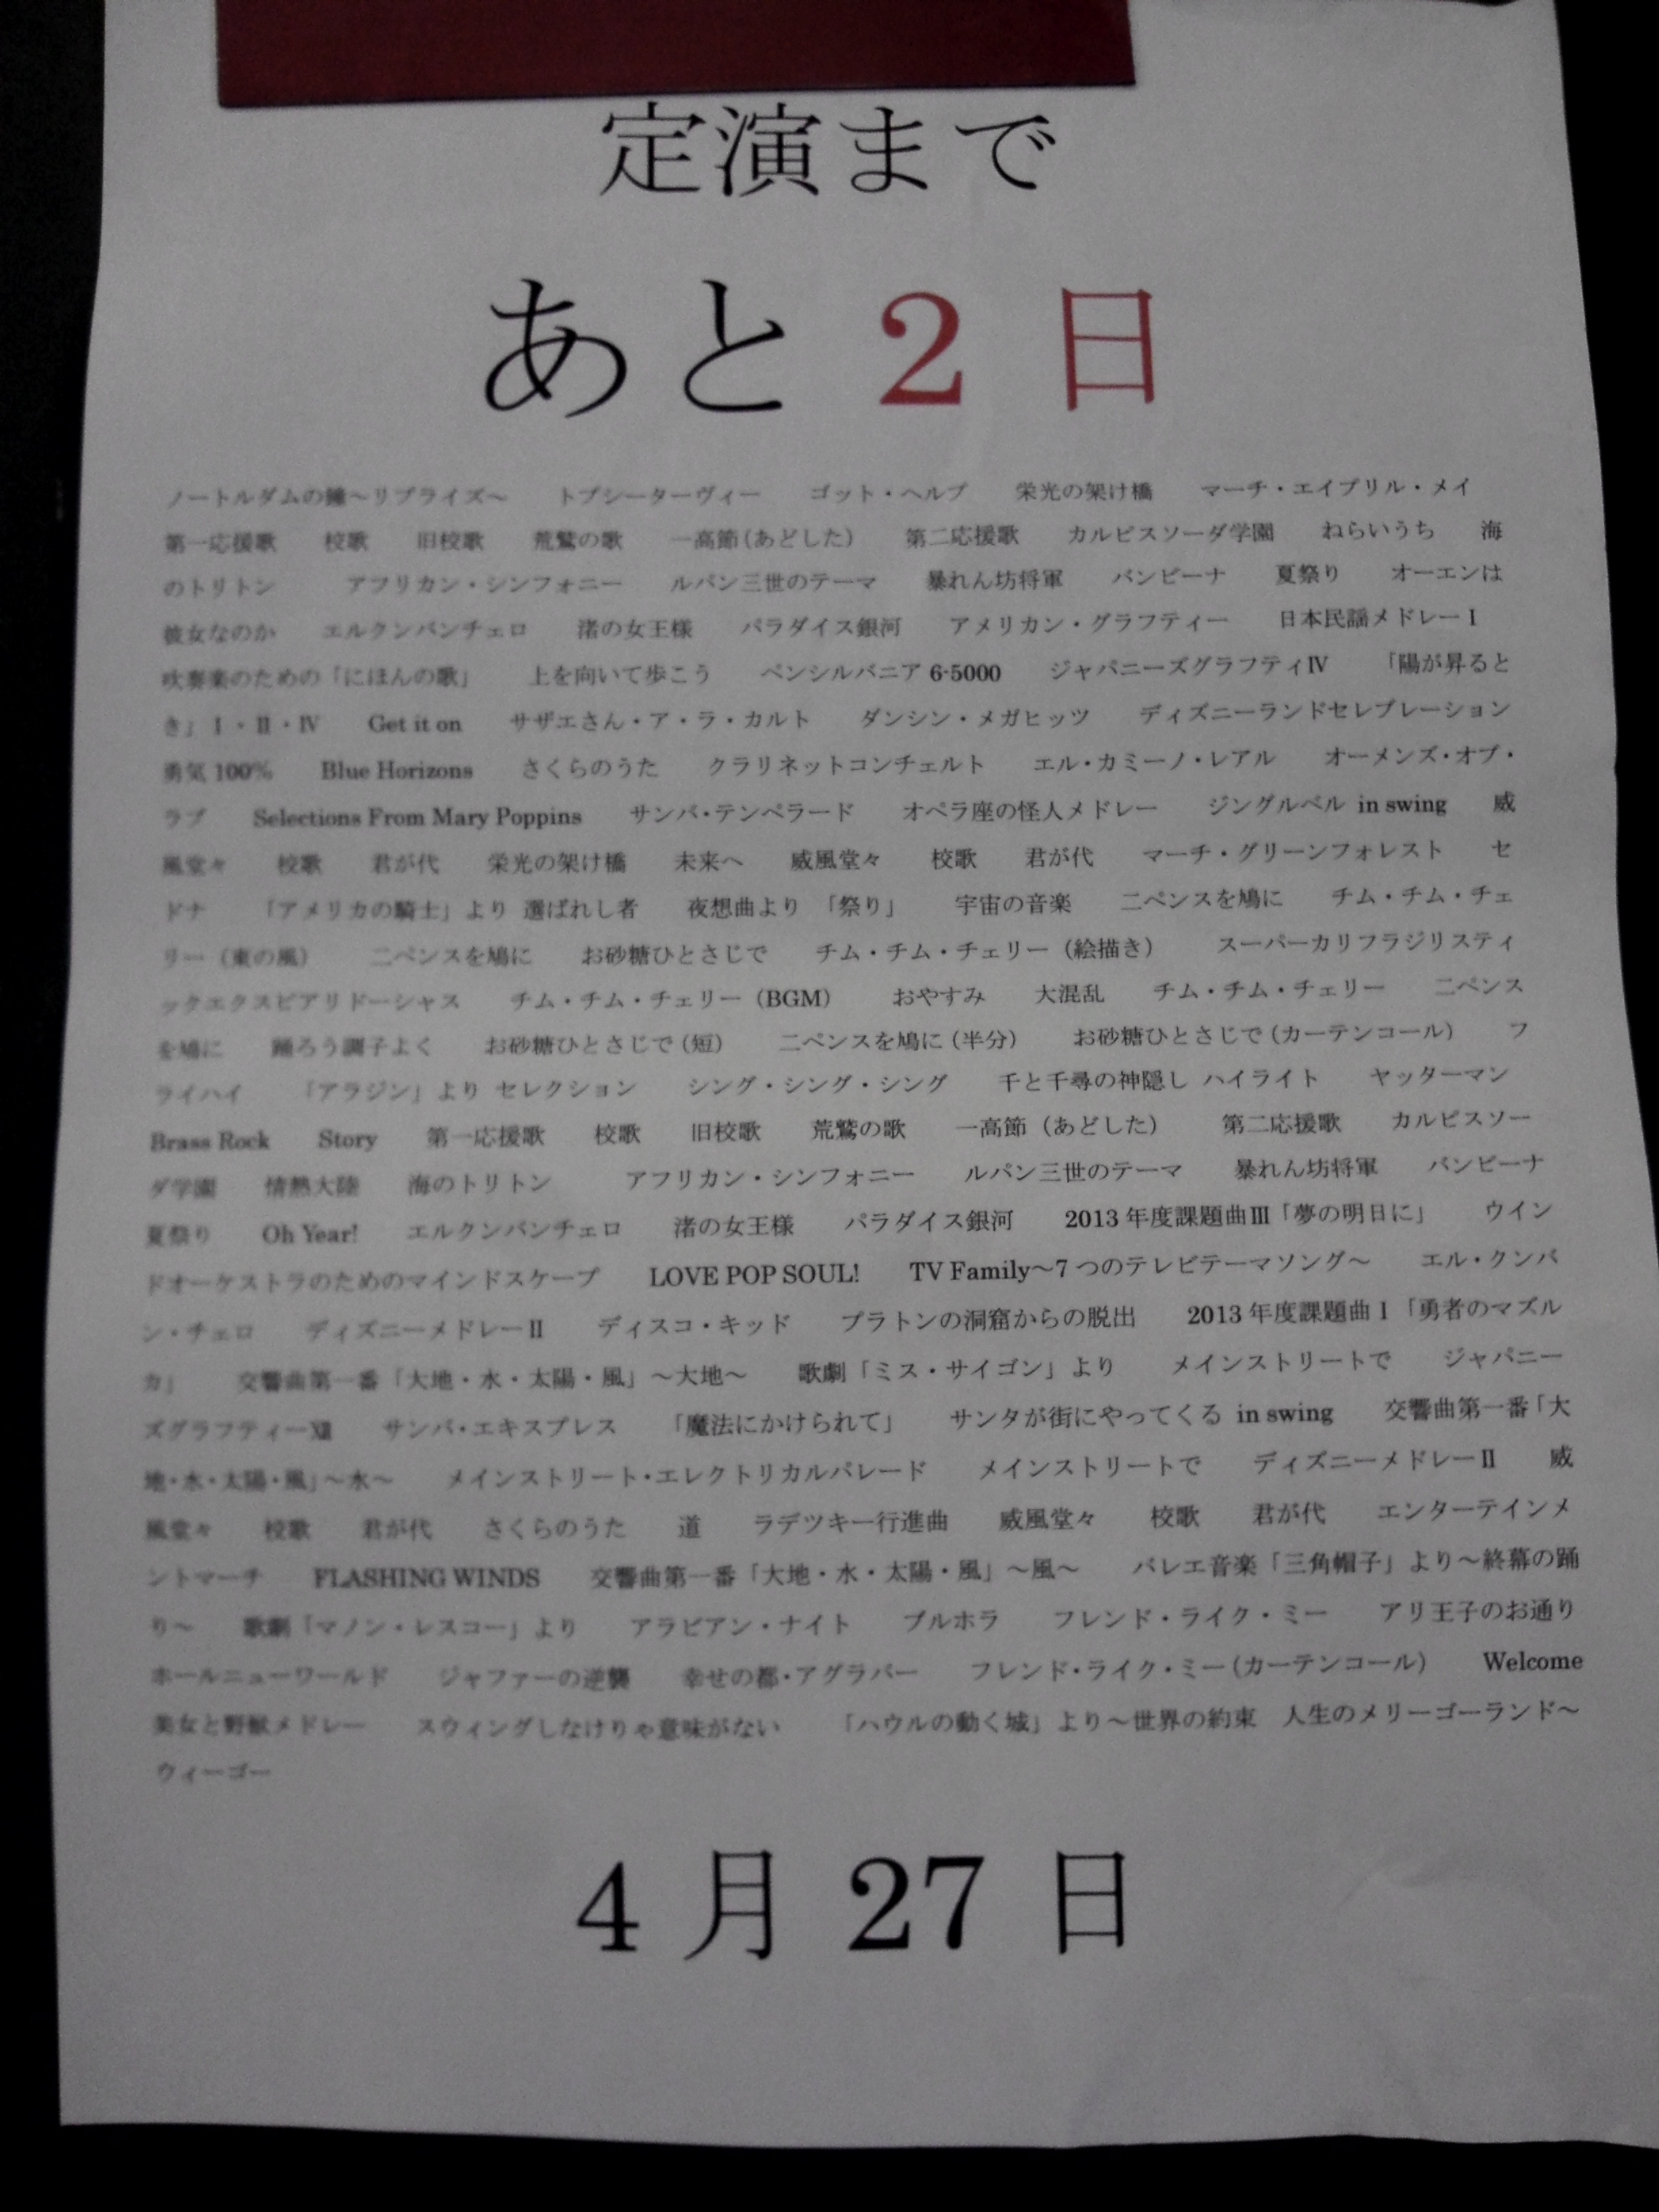 定演まで
あと2日
ノートルダムの鐘～リプライズ～　トプシーターヴィー　ゴット・ヘルプ　栄光の架け橋　マーチ・エイプリル・メイ
第一応援歌　校歌　旧校歌　荒鷲の歌　一高節(あどした)　第二応援歌　カルピスソーダ学園　ねらいうち　海
のトリトン　アフリカン・シンフォニー　ルパン三世のテーマ　暴れん坊将軍　バンビーナ　夏祭り　オーエンは
彼女なのか　エルクンバンチェロ　渚の女王様　パラダイス銀河　アメリカン・グラフティー　日本民謡メドレーⅠ
吹奏楽のための「にほんの歌」　上を向いて歩こう　ペンシルバニア 6-5000　ジャパニーズグラフティⅣ　「陽が昇ると
き」Ⅰ・Ⅱ・Ⅳ　Get it on　サザエさん・ア・ラ・カルト　ダンシン・メガヒッツ　ディズニーランドセレブレーション
勇気 100%　Blue Horizons　さくらのうた　クラリネットコンチェルト　エル・カミーノ・レアル　オーメンズ・オブ・
ラブ　Selections From Mary Poppins　サンバ・テンペラード　オペラ座の怪人メドレー　ジングルベル in swing　威
風堂々　校歌　君が代　栄光の架け橋　未来へ　威風堂々　校歌　君が代　マーチ・グリーンフォレスト　セ
ドナ　「アメリカの騎士」より 選ばれし者　夜想曲より 「祭り」　宇宙の音楽　二ペンスを鳩に　チム・チム・チェ
リー（東の風）　二ペンスを鳩に　お砂糖ひとさじで　チム・チム・チェリー（絵描き）　スーパーカリフラジリスティ
ックエクスピアリドーシャス　チム・チム・チェリー（BGM）　おやすみ　大混乱　チム・チム・チェリー　二ペンス
を鳩に　踊ろう調子よく　お砂糖ひとさじで(短)　二ペンスを鳩に(半分)　お砂糖ひとさじで(カーテンコール)　フ
ライハイ　「アラジン」より セレクション　シング・シング・シング　千と千尋の神隠し ハイライト　ヤッターマン
Brass Rock　Story　第一応援歌　校歌　旧校歌　荒鷲の歌　一高節（あどした）　第二応援歌　カルピスソー
ダ学園　情熱大陸　海のトリトン　アフリカン・シンフォニー　ルパン三世のテーマ　暴れん坊将軍　バンビーナ
夏祭り　Oh Year!　エルクンバンチェロ　渚の女王様　パラダイス銀河　2013 年度課題曲Ⅲ「夢の明日に」　ウイン
ドオーケストラのためのマインドスケープ　LOVE POP SOUL!　TV Family～7 つのテレビテーマソング～　エル・クンバ
ン・チェロ　ディズニーメドレーⅡ　ディスコ・キッド　プラトンの洞窟からの脱出　2013 年度課題曲Ⅰ「勇者のマズル
カ」　交響曲第一番「大地・水・太陽・風」～大地～　歌劇「ミス・サイゴン」より　メインストリートで　ジャパニー
ズグラフティー　サンバ・エキスプレス　「魔法にかけられて」　サンタが街にやってくる in swing　交響曲第一番「大
地・水・太陽・風」～水～　メインストリート・エレクトリカルパレード　メインストリートで　ディズニーメドレーⅡ　威
風堂々　校歌　君が代　さくらのうた　道　ラデツキー行進曲　威風堂々　校歌　君が代　エンターテインメ
ントマーチ　FLASHING WINDS　交響曲第一番「大地・水・太陽・風」～風～　バレエ音楽「三角帽子」より～終幕の踊
り～　歌劇「マノン・レスコー」より　アラビアン・ナイト　ブルホラ　フレンド・ライク・ミー　アリ王子のお通り
ホールニューワールド　ジャファーの逆襲　幸せの都・アグラバー　フレンド・ライク・ミー(カーテンコール)　Welcome
美女と野獣メドレー　スウィングしなけりゃ意味がない　「ハウルの動く城」より～世界の約束　人生のメリーゴーランド～
ウィーゴー
4月27日